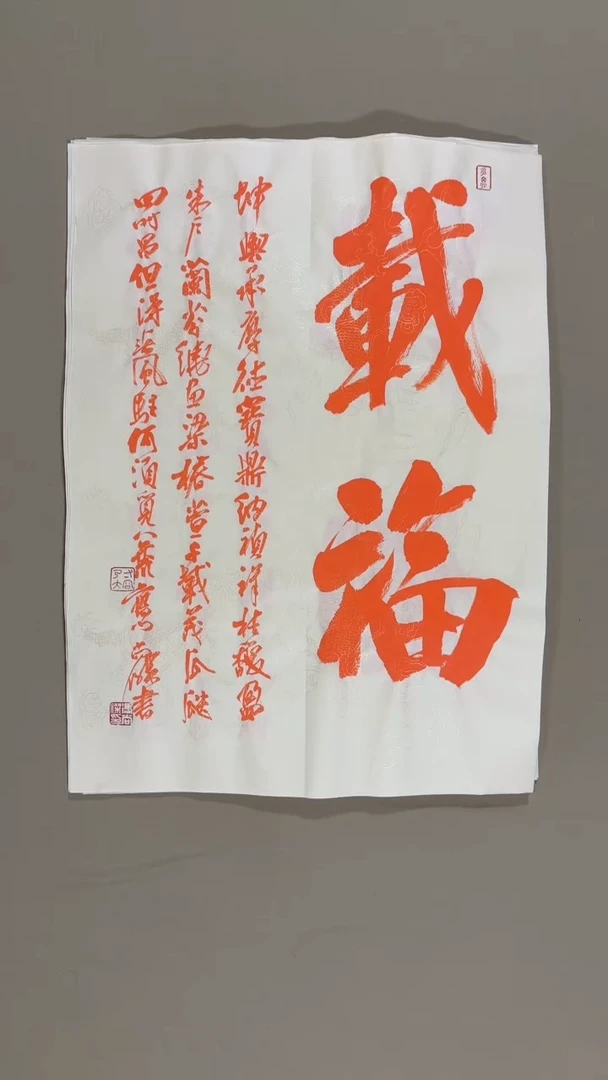 載福
坤輿承厚德寶鼎納禎祥桂馥盈
朱戶蘭芬繞畫梁椿萱千載茂瓜瓞
四時昌但得春風駐何須覓八荒
書